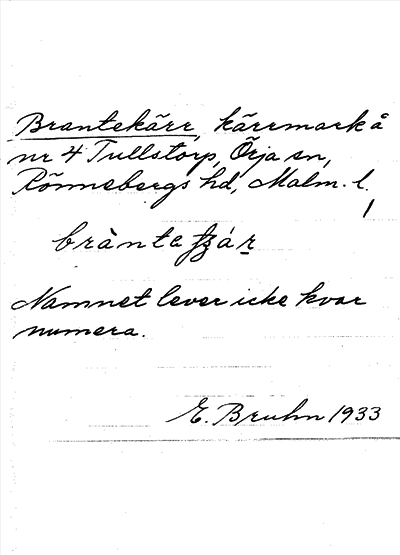 Brantekärr, kärrmark å
nr 4 Tullstorp, Örja sn,
Rönnebergs hd, Malm. l.
brànte
Namnet lever icke kvar
numera.
E. Bruhn 1933